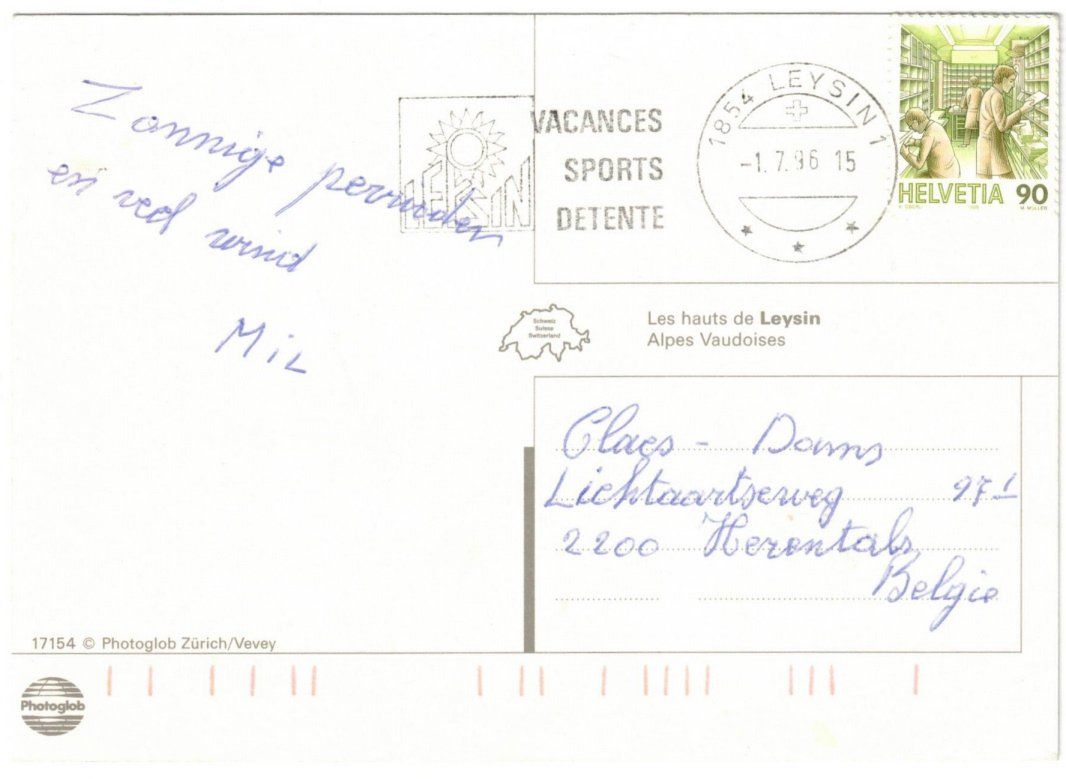 Zonnige perioden
en veel wind
Mil
LEYSIN
VACANCES
SPORTS
DETENTE
1854 LEYSIN 1
-1.7.96 15
HELVETIA 90
M. MÜLLER
Schweiz
Suisse
Switzerland
Les hauts de Leysin
Alpes Vaudoises
Claes - Dams
Lichtaartseweg 97
2200 Herentals
Belgie
17154 © Photoglob Zürich/Vevey
Photoglob